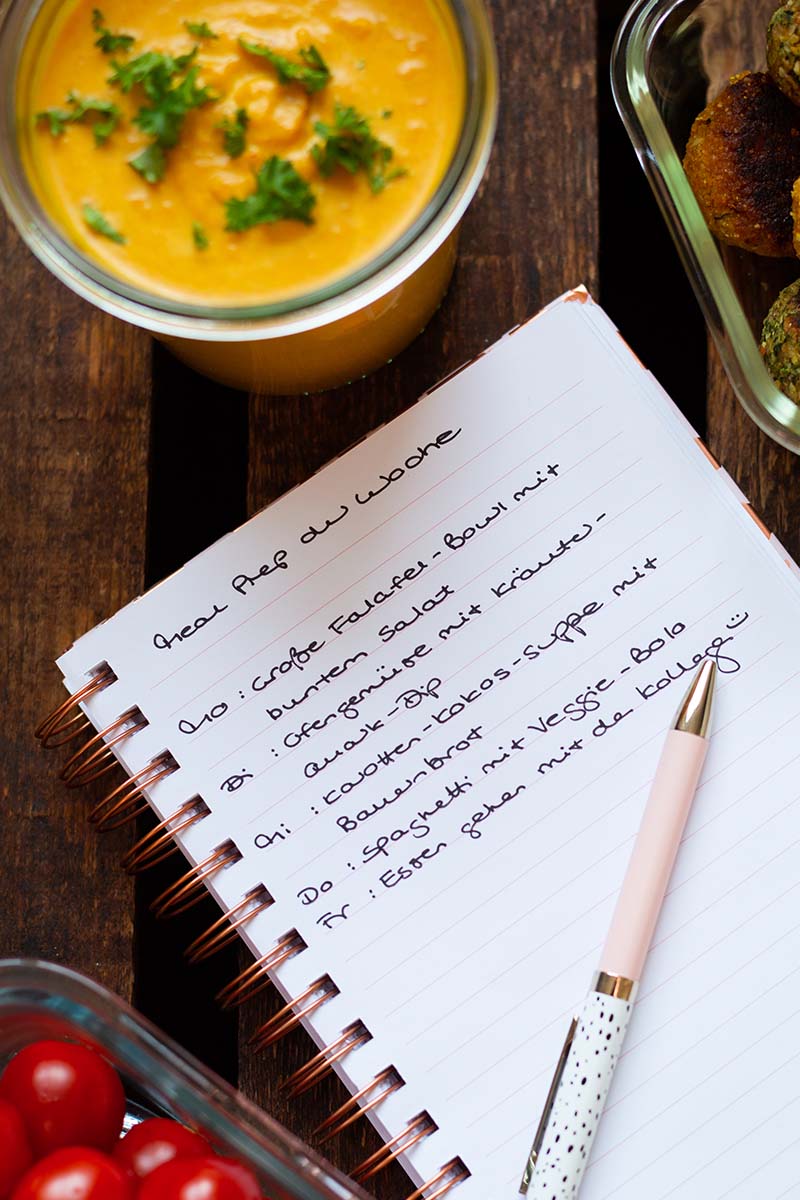 Meal Prep der Woche
Mo : Große Falafel-Bowl mit
buntem Salat
Di : Ofengemüse mit Kräuter-
Quark-Dip
Mi : Karotten-Kokos-Suppe mit
Bauernbrot
Do : Spaghetti mit Veggie-Bolo
Fr : Essen gehen mit de Kollegen